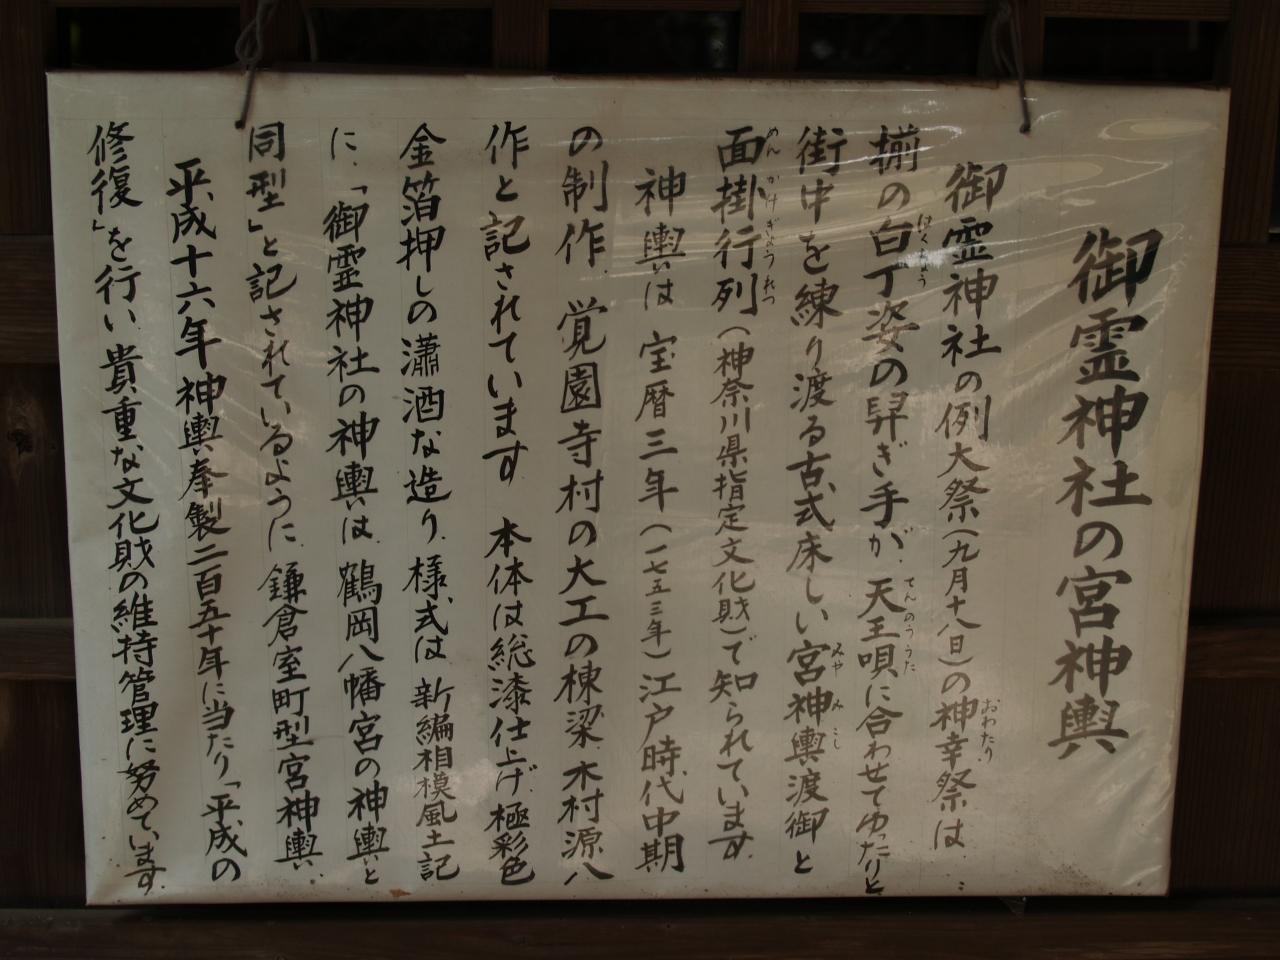 御霊神社の宮神輿
御霊神社の例大祭(九月十八日)の神幸祭は
おわたり
揃の白丁姿の舁ぎ手が天王唄に合わせてゆったりと
はくちょう
てんのううた
街中を練り渡る古式床しい宮神輿渡御と
みやみこし
面掛行列(神奈川県指定文化財)で知られています
めんかけぎょうれつ
神輿は宝暦三年(一七五三年)江戸時代中期
の制作 覚園寺村の大工の棟梁 木村源八
作と記されています 本体は総漆仕上げ極彩色
金箔押しの瀟酒な造り 様式は 新編相模風土記
に「御霊神社の神輿は 鶴岡八幡宮の神輿と
同型」と記されているように 鎌倉室町型宮神輿
平成十六年神輿奉製二百五十年に当たり「平成の
修復」を行い貴重な文化財の維持管理に努めています